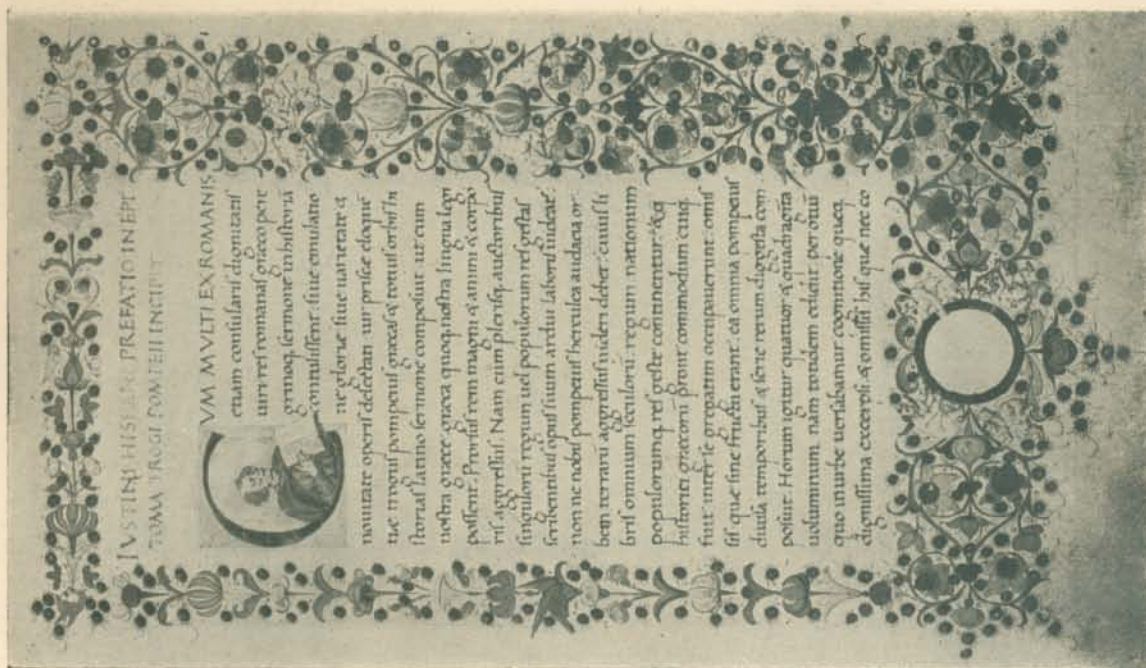 IVSTINI HISTORICI PREFATIO IN EPI
TOMA TROGI POMPEII INCIPIT
VM MVLTI EX ROMANIS
etiam consularis dignitatis
uiri res romanas græco pere
grinoq. sermone in historia
contulissent: siue emulatio
ne gloriæ siue uarietate &
nouitate operis delectati uir priscæ eloquē
tiæ trogus pompeius græcas & totius orbis hi
storias latino sermone composuit ut cum
nostra græce græca quoq. nostra lingua legi
possent. Prorsus rem magni & animi & corpo
ris aggressus. Nam cum plerisq. auctoribus
singulorū regum uel populorum res gestas
scribentibus opus suum ardui laboris uideat͛:
non ne nobis pompeius herculea audacia or
bem terrarū aggressus uideri debet: cuius li
bris omnium seculorū: regum nationum
populorumq. res gestæ continentur: & q̄
historici græcorū prout commodum cuiq.
fuit inter se gregatim occupauerunt: omis
sis quæ sine fructu erant: ea omnia pompeius
diuisa temporibus & serie rerum digesta com
posuit. Horum igitur quatuor & quadraginta
uoluminum. nam totidem edidit per otiū
quo in urbe uersabamur cognitione quæq.
dignissima excerpsi & omissis his que nec co